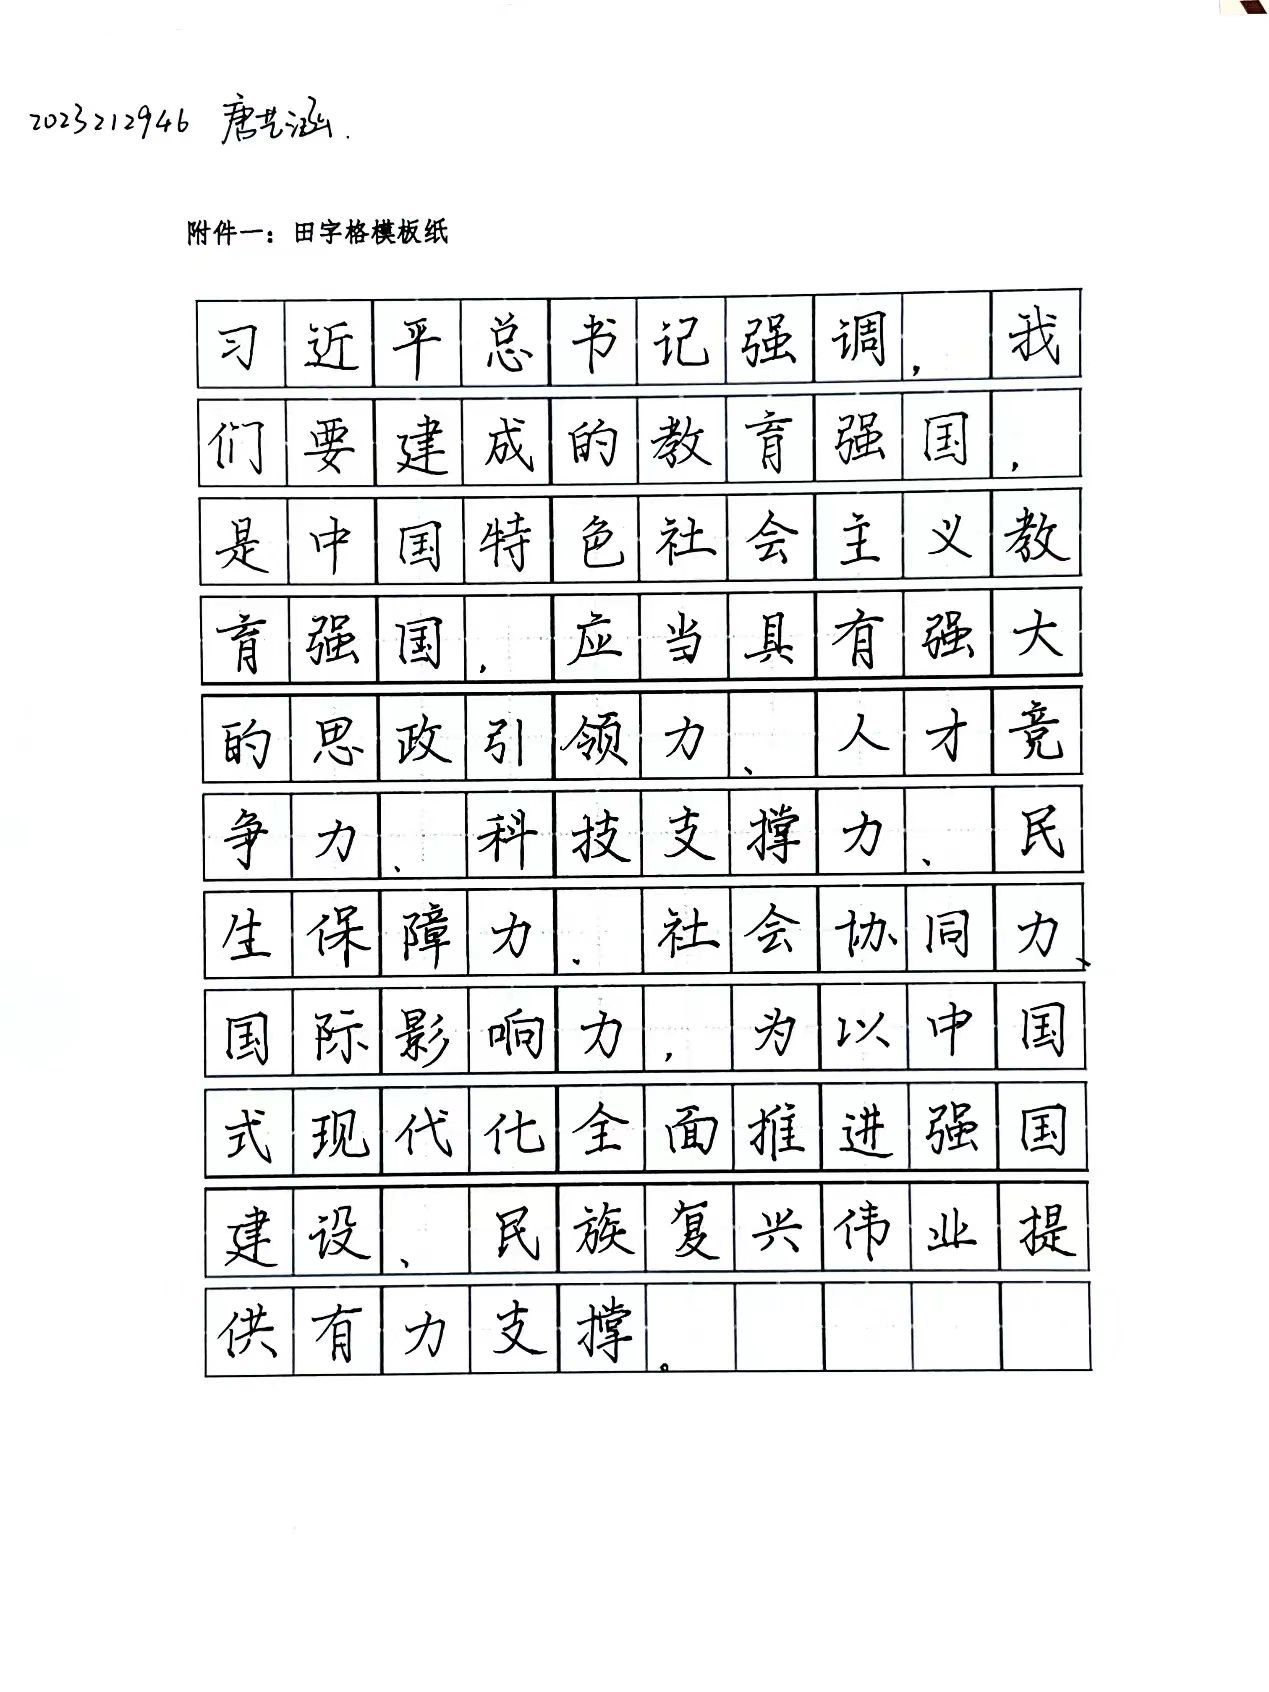 2023212946 唐艺涵.
附件一：田字格模板纸
习近平总书记强调，我
们要建成的教育强国，
是中国特色社会主义教
育强国，应当具有强大
的思政引领力、人才竞
争力、科技支撑力、民
生保障力、社会协同力、
国际影响力，为以中国
式现代化全面推进强国
建设、民族复兴伟业提
供有力支撑。